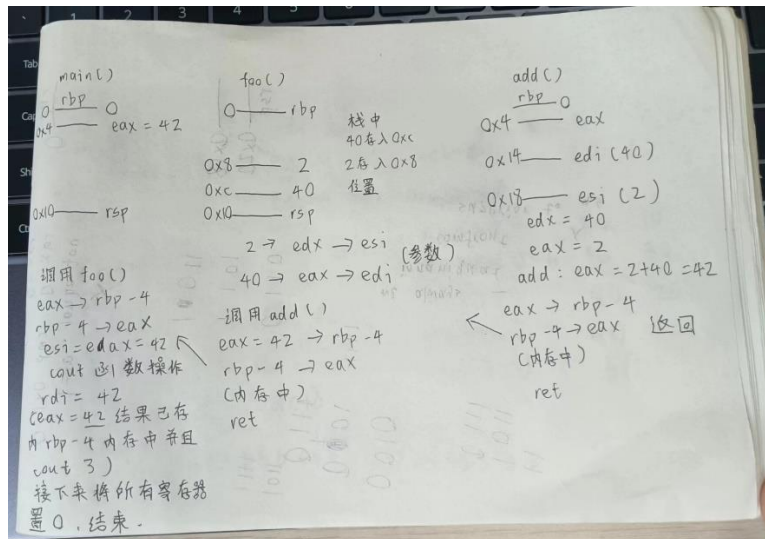 main()
rbp
0 0
0x4 eax = 42
0x10 rsp
调用 foo()
eax → rbp-4
rbp-4 → eax
esi = edax = 42
cout 函数操作
rdi = 42
(eax = 42 结果已存
内 rbp-4 内存中并且
cout 了)
接下来将所有寄存器
置0,结束.
foo()
0 rbp
0x8 2
0xc 40
0x10 rsp
栈中
40存入0xc
2存入0x8
位置
2 → edx → esi
(参数)
40 → eax → edi
调用 add()
eax = 42 → rbp-4
rbp-4 → eax
(内存中)
ret
add()
rbp 0
0x4 eax
0x14 edi (40)
0x18 esi (2)
edx = 40
eax = 2
add: eax = 2+40 = 42
eax → rbp-4
rbp-4 → eax 返回
(内存中)
ret